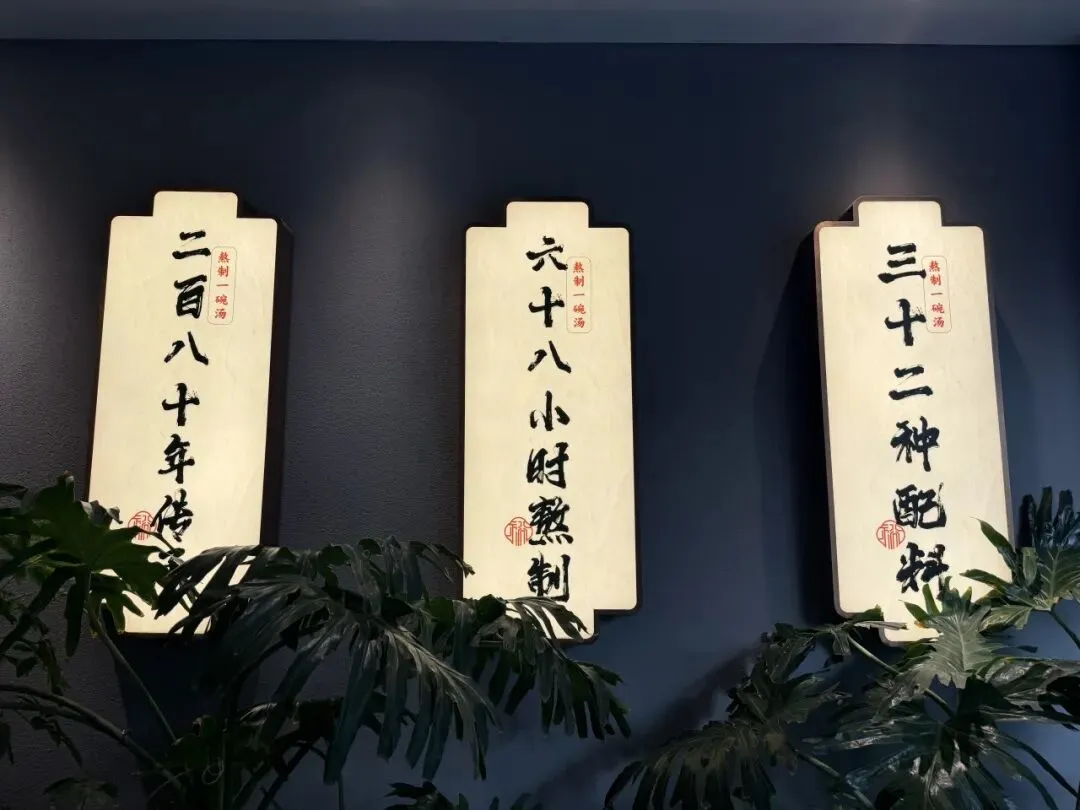 二百八十年传
熬制一碗汤
六十八小时熬制
熬制一碗汤
三十二种配料
熬制一碗汤